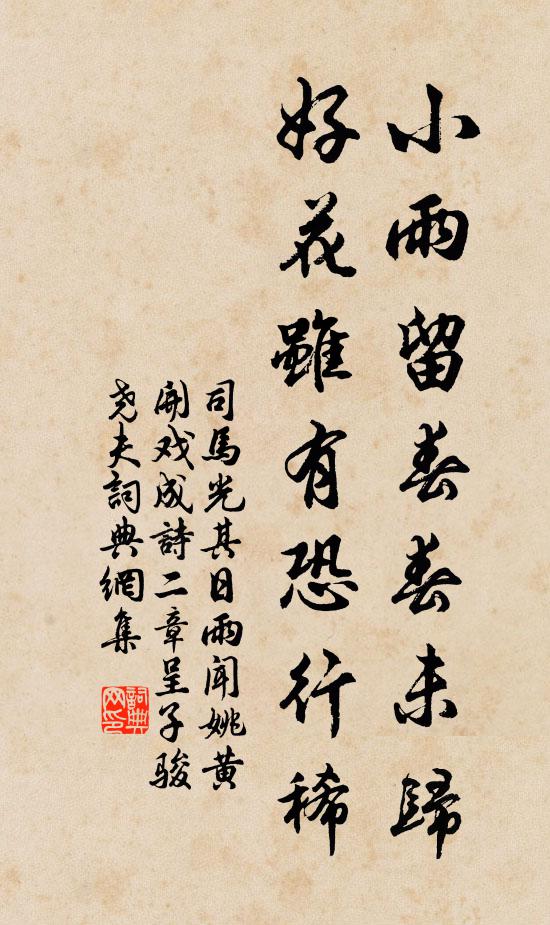 小雨留春春未歸
好花雖有恐行稀
司馬光其日雨聞姚黃
開戏成詩二章呈子駿
尧夫詞典網集
詞典網印